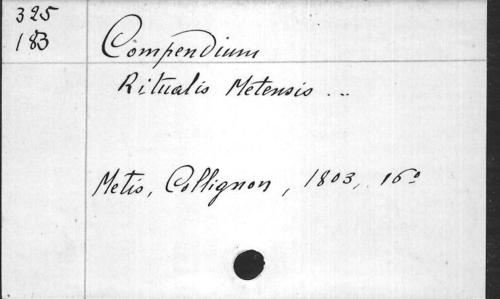 325
183
Compendium
Ritualis Metensis ...
Metis, Collignon, 1803, 16°